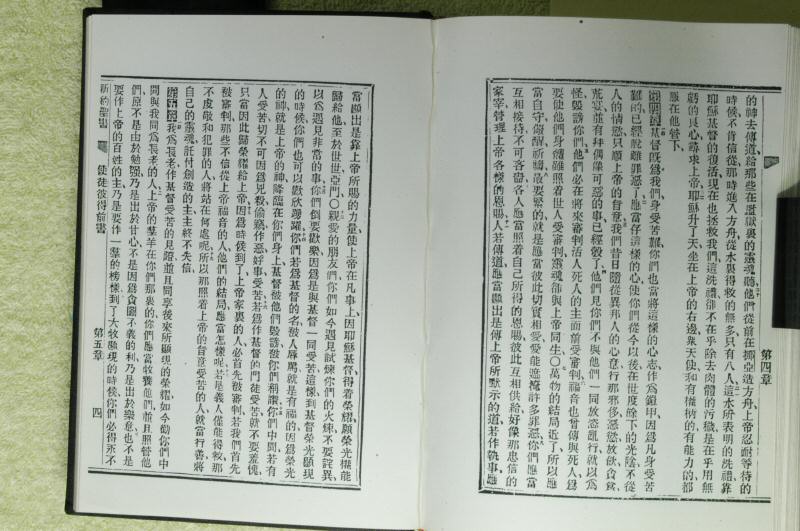 第四章
的神去傳道給那些在監獄裏的靈魂聽他們從前在挪亞造方舟上帝忍耐等待的
時候不肯信從那時進入方舟從水裏得救的無多只有八人這水所表明的洗禮靠
耶穌基督的復活現在也拯救我們這洗禮卻不在乎除去肉體的污穢是在乎用無
虧的良心尋求上帝耶穌升了天坐在上帝的右邊衆天使和有權柄的有能力的都
服在他管下
基督旣爲我們身受苦難你們也當將這樣的心志作爲鎧甲因爲凡身受苦
難的已經脫離罪惡了應當存這樣的心使你們從今以後在世度餘下的光陰不從
人的情慾只順上帝的旨意我們昔日隨從異邦人的心意行那邪侈惡慾放飲食
荒宴並有拜偶像可惡的事已經彀了他們見你們不與他們一同放蕩亂行就以爲
怪毀謗你們他們必在將來審判活人死人的主面前受審判福音也曾傳與死人爲
要使他們身體雖照着世人受審判靈魂卻與上帝同生〇萬物的結局近了所以應
當自守儆醒祈禱最要緊的就是應當彼此切實相愛愛能遮掩許多罪惡你們應當
互相接待不可吝嗇各人應當照着自己所得的恩賜彼此互相供給好像那忠信的
家宰管理上帝各樣的恩賜人若傳道應當顯出是傳上帝所默示的道若作執事應
當顯出是靠上帝所賜的力量使上帝在凡事上因耶穌基督得着榮耀願榮光權能
歸給他至於世世亞門〇親愛的朋友們你們如今遇見試煉你們的火煉不要詫異
以爲遇見非常的事你們倒要歡樂因爲是與基督一同受苦這樣到基督榮光顯現
的時候你們也可以歡欣踴躍你們若爲基督的名被人辱罵就是有福的因爲榮光
的神就是上帝的神降臨在你們身上基督被他們毀謗被你們稱讚你們中間若有
人受苦切不可因爲兇殺偷竊作惡好事受苦若爲作基督的門徒受苦就不要羞愧
只當因此歸榮耀給上帝因爲時候到了上帝家裏的人必首先被審判若我們首先
被審判那些不信從上帝福音的人他們的結局應當怎樣呢若是義人僅能得救那
不虔敬和犯罪的人將站在何處呢所以那照着上帝的旨意受苦的人就當行善將
自己的靈魂託付創造的主主終不失信
第五章我爲長老作基督受苦的見證並且同享後來所顯現的榮耀如今勸你們中
間與我同爲長老的人上帝的羣羊在你們那裏的你們應當牧養他們並且照管他
們原不是由於勉強乃是出於甘心不是因爲貪圖不義的利乃是出於樂意也不是
要作上帝的百姓的主乃是要作羣的榜樣到了大牧顯現的時候你們必得永不
新約聖書
使徒彼得前書
第五章
四